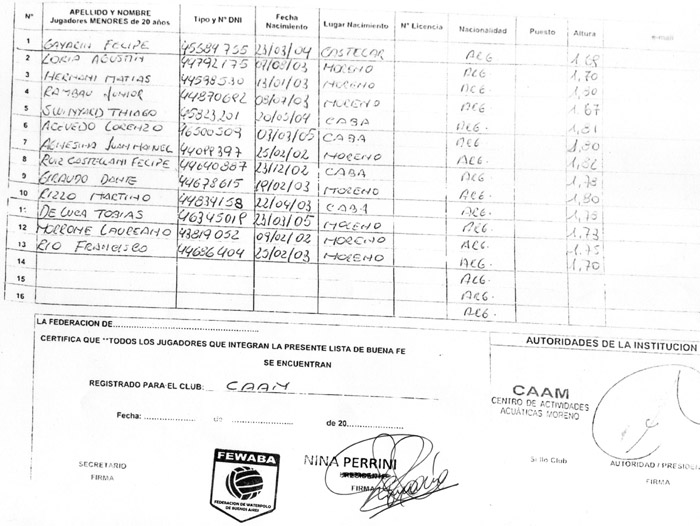 N° APELLIDO Y NOMBRE Jugadores MENORES de 20 años Tipo y N° DNI Fecha Nacimiento Lugar Nacimiento N° Licencia Nacionalidad Puesto Altura e-mail
1 GAYALIN FELIPE 45584755 23/03/04 CASTELAR ARG 1,68
2 LORIA AGUSTIN 44792175 MORENO ARG 1,70
3 HERMONI MATIAS 44598530 13/01/03 MORENO ARG
4 RAMBAU JUNIOR 44870682 08/07/03 MORENO ARG 1,67
5 SWINYARD THIAGO 45323201 20/05/04 CABA ARG. 1,81
6 ACEVEDO LORENZO 46500509 03/03/05 CABA ARG. 1,80
7 JUAN MANUEL 44099397 25/02/02 MORENO ARG.
8 RUIZ COSTELLANI FELIPE 44640887 23/12/02 CABA ARG.
9 GIRAUDO DANTE 44678615 19/02/03 MORENO ARG. 1,80
10 RIZZO MARTINO 44834158 22/04/03 CABA ARG.
11 DE LUCA TOBIAS 46345018 23/03/05 MORENO ARG. 1,73
12 MORRONE LAUREANO 43819052 09/02/02 MORENO ARG. 1,75
13 RIO FRANCISCO 44686404 25/02/03 MORENO ARG. 1,70
14 ARG.
15 ARG.
16 ARG.
LA FEDERACION DE
CERTIFICA QUE **TODOS LOS JUGADORES QUE INTEGRAN LA PRESENTE LISTA DE BUENA FE
SE ENCUENTRAN
REGISTRADO PARA EL CLUB: CAAM
Fecha: de de 20
SECRETARIO
FIRMA
FEWABA
FEDERACION DE WATERPOLO
DE BUENOS AIRES
NINA PERRINI
PRESIDENTE
FIRMA
AUTORIDADES DE LA INSTITUCION
CAAM
CENTRO DE ACTIVIDADES
ACUÁTICAS MORENO
Sello Club
AUTORIDAD / PRESIDEN
FIRMA